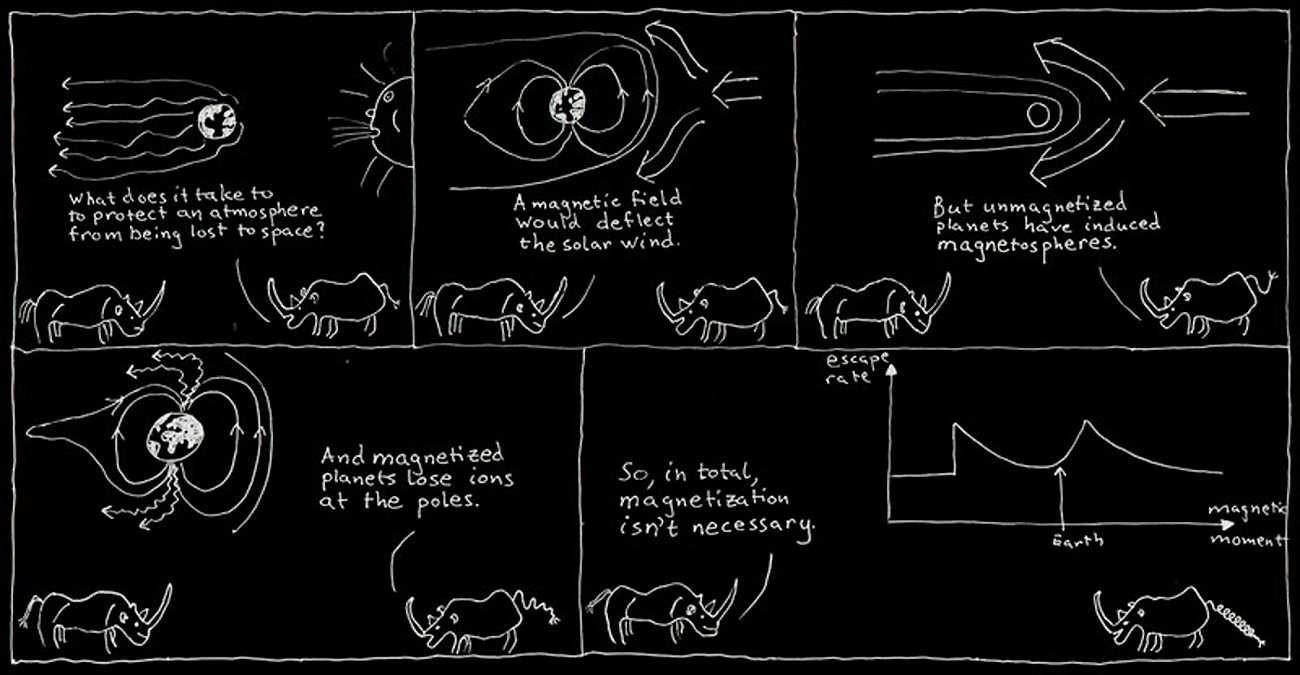 What does it take to
to protect an atmosphere
from being lost to space?
A magnetic field
would deflect
the solar wind.
But unmagnetized
planets have induced
magnetospheres.
And magnetized
planets lose ions
at the poles.
So, in total,
magnetization
isn't necessary.
escape
rate
magnetic
moment
Earth